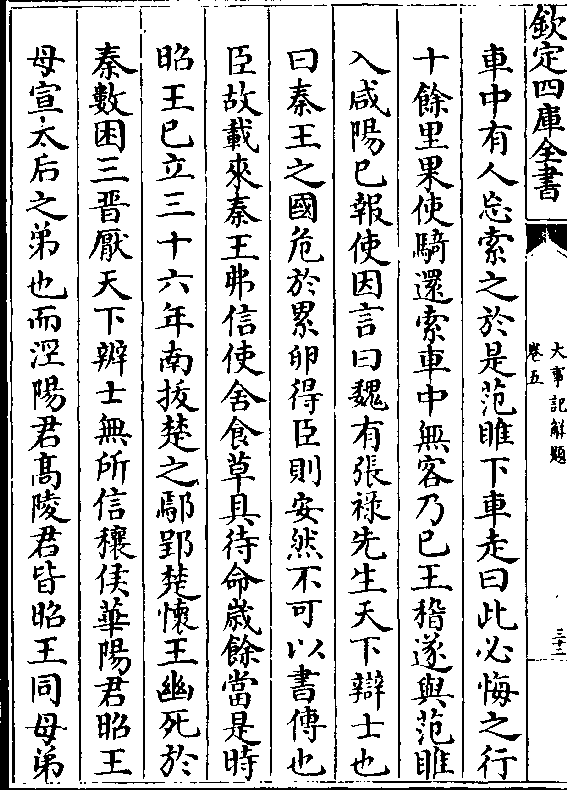 欽定四庫全書
大事記解題
卷五
三十二
車中有人忘索之於是范睢下車走曰此必悔之行
十餘里果使騎還索車中無客乃已王稽遂與范睢
入咸陽已報使因言曰魏有張祿先生天下辯士也
曰秦王之國危於累卵得臣則安然不可以書傳也
臣故載來秦王弗信使舍食草具待命歲餘當是時
昭王已立三十六年南拔楚之鄢郢楚懷王幽死於
秦數困三晉厭天下辨士無所信穰侯華陽君昭王
母宣太后之弟也而涇陽君高陵君皆昭王同母弟